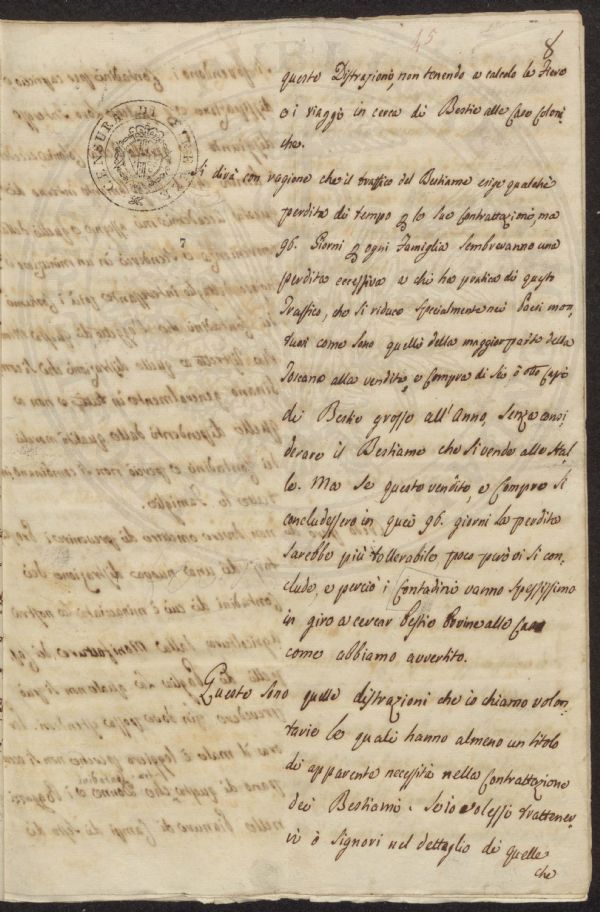 45
8
queste Distrazioni, non tenendo a calcolo le Fiere
o i viaggi in cerca di Bestie alle Case Coloni
che.
Si dirà con ragione che il traffico del Bestiame esige qualche
perdita di tempo p le sue Contrattazioni, ma
96. Giorni p ogni Famiglia sembreranno una
perdita eccessiva a chi ha pratica di questo
Traffico, che si riduce specialmente nei Paesi mon,
tuosi come sono quelli della maggior parte della
Toscana alla vendita, e Compra di sei o otto Capi
di Bestie grosse all'Anno, senza consi,
derare il Bestiame che si vende alle Stal,
le. Ma se queste vendite, e Compre si
concludessero in quei 96. giorni la perdita
sarebbe più tollerabile poco però vi si con,
clude, e perciò i Contadini vanno spessissimo
in giro a cercar Bestie Bovine alle Case
come abbiamo avvertito.
Queste sono quelle distrazioni che io chiamo volon,
tarie le quali hanno almeno un titolo
di apparente necessità nella Contrattazione
dei Bestiami. Se io volessi trattener,
vi o Signori nel dettaglio di quelle
che
7